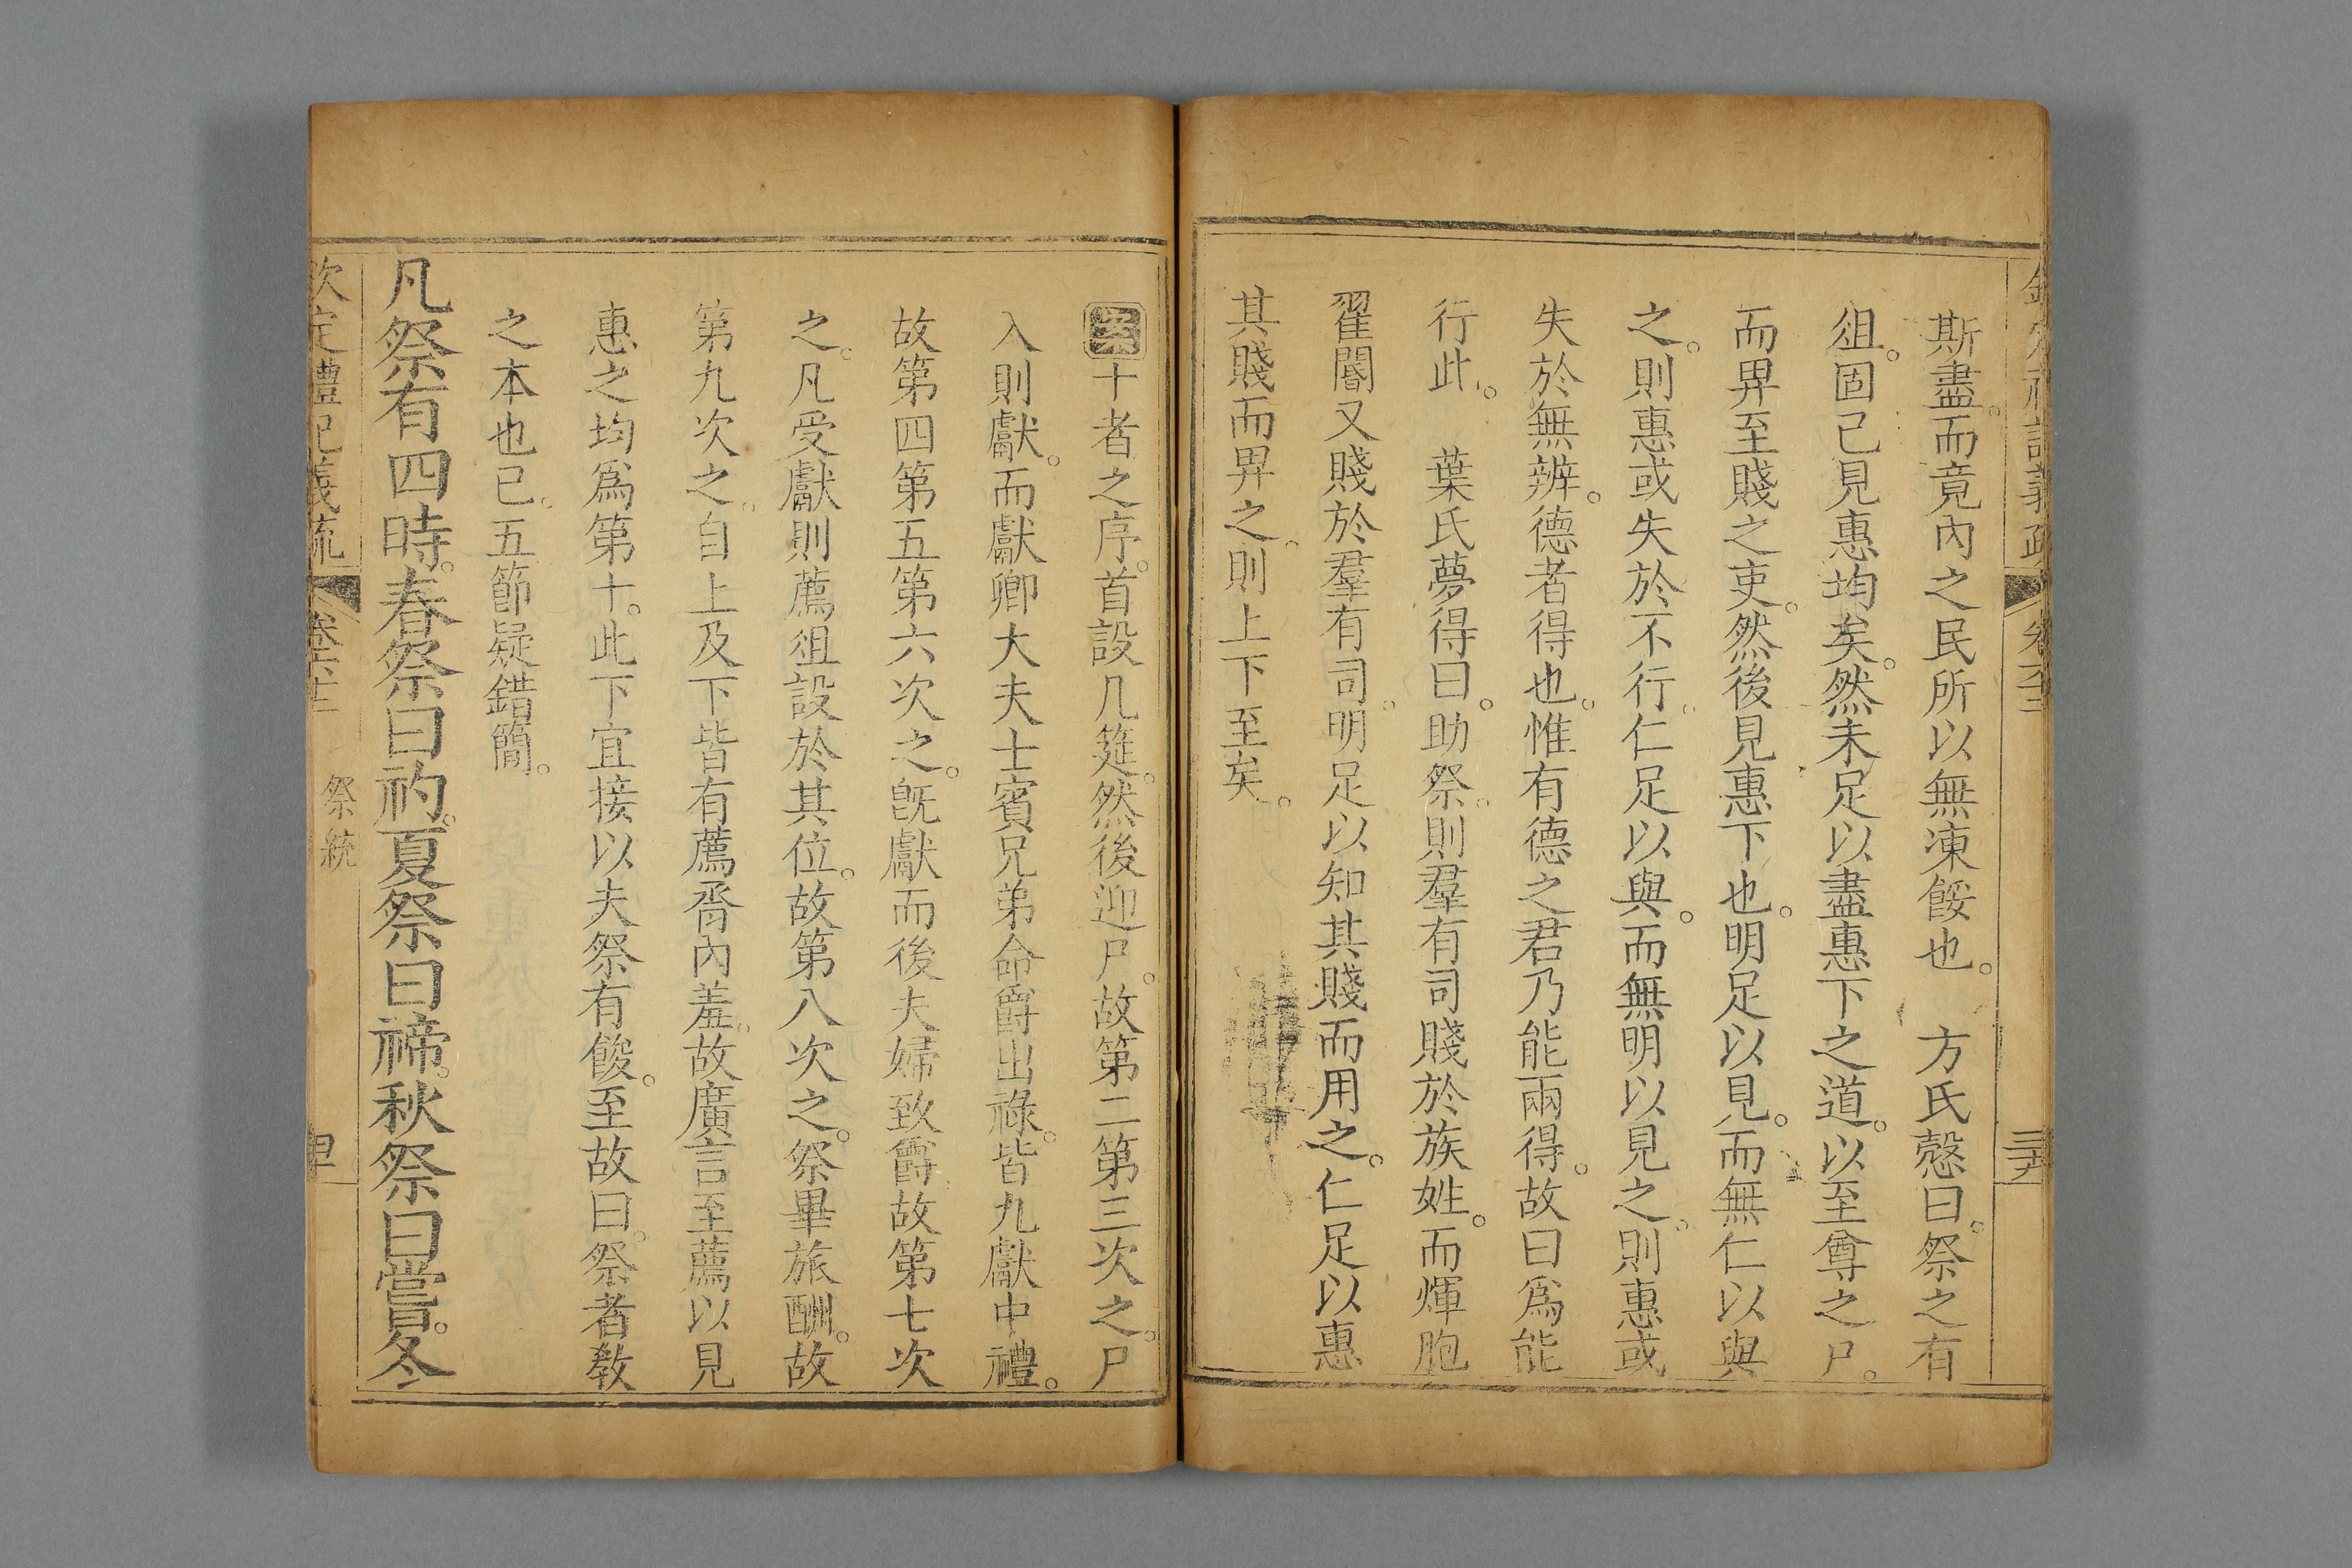 斯盡。而竟內之民所以無凍餒也。　方氏慤曰。祭之有
俎。固已見惠均矣。然未足以盡惠下之道。以至尊之尸。
而畀至賤之吏。然後見惠下也。明足以見。而無仁以與
之。則惠或失於不行。仁足以與。而無明以見之。則惠或
失於無辨。德者得也。惟有德之君乃能兩得。故曰爲能
行此。　葉氏夢得曰。助祭。則羣有司賤於族姓。而煇胞
翟閽又賤於羣有司。明足以知其賤而用之。仁足以惠
其賤而畀之。則上下至矣。
十者之序。首設几筵。然後迎尸。故第二第三次之。尸
入則獻。而獻卿大夫士賓兄弟命爵出祿。皆九獻中禮。
故第四第五第六次之。旣獻而後夫婦致爵。故第七次
之。凡受獻則薦俎設於其位。故第八次之。祭畢旅酬。故
第九次之。自上及下皆有薦脀內羞。故廣言至薦以見
惠之均爲第十。此下宜接以夫祭有餕。至故曰。祭者敎
之本也已。五節疑錯簡。
凡祭有四時。春祭曰礿。夏祭曰禘。秋祭曰嘗。冬
欽定禮記義疏　卷六十二　祭統